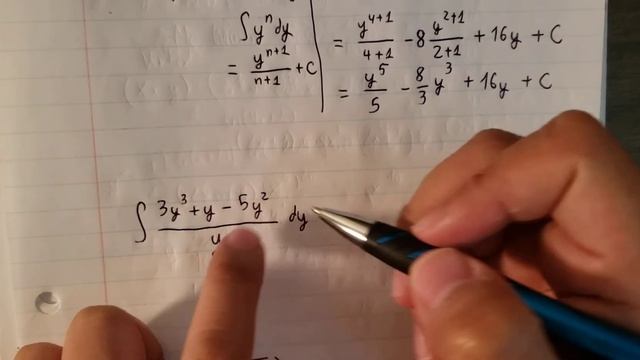 ∫yⁿdy
= yⁿ⁺¹/n+1 + C
= y⁴⁺¹/4+1 - 8 y²⁺¹/2+1 + 16y + C
= y⁵/5 - 8/3 y³ + 16y + C
∫ 3y³ + y - 5y² / y dy